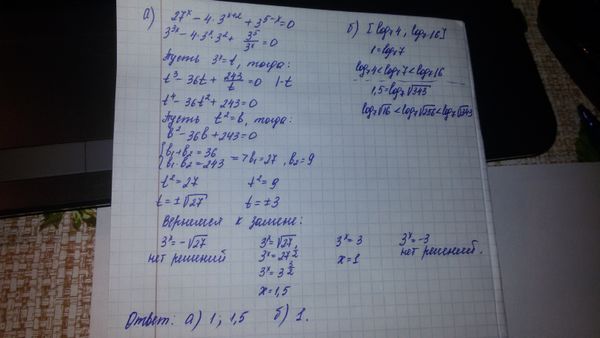 а) 27ˣ - 4·3ˣ⁺² + 3⁵⁻ˣ = 0
3³ˣ - 4·3ˣ·3² + 3⁵/3ˣ = 0
Пусть 3ˣ = t, тогда:
t³ - 36t + 243/t = 0 |·t
t⁴ - 36t² + 243 = 0
Пусть t² = b, тогда:
b² - 36b + 243 = 0
{b₁ + b₂ = 36
{b₁·b₂ = 243 => b₁ = 27, b₂ = 9
t² = 27 t² = 9
t = ±√27 t = ±3
Вернемся к замене:
3ˣ = -√27 3ˣ = √27 3ˣ = 3 3ˣ = -3
нет решений 3ˣ = 27^½ x = 1 нет решений.
3ˣ = 3^(3/2)
x = 1,5
Ответ: а) 1; 1,5 б) 1.
б) [log₇4, log₇16]
1 = log₇7
log₇4 < log₇7 < log₇16
1,5 = log₇√343
log₇√16 < log₇√256 < log₇√343